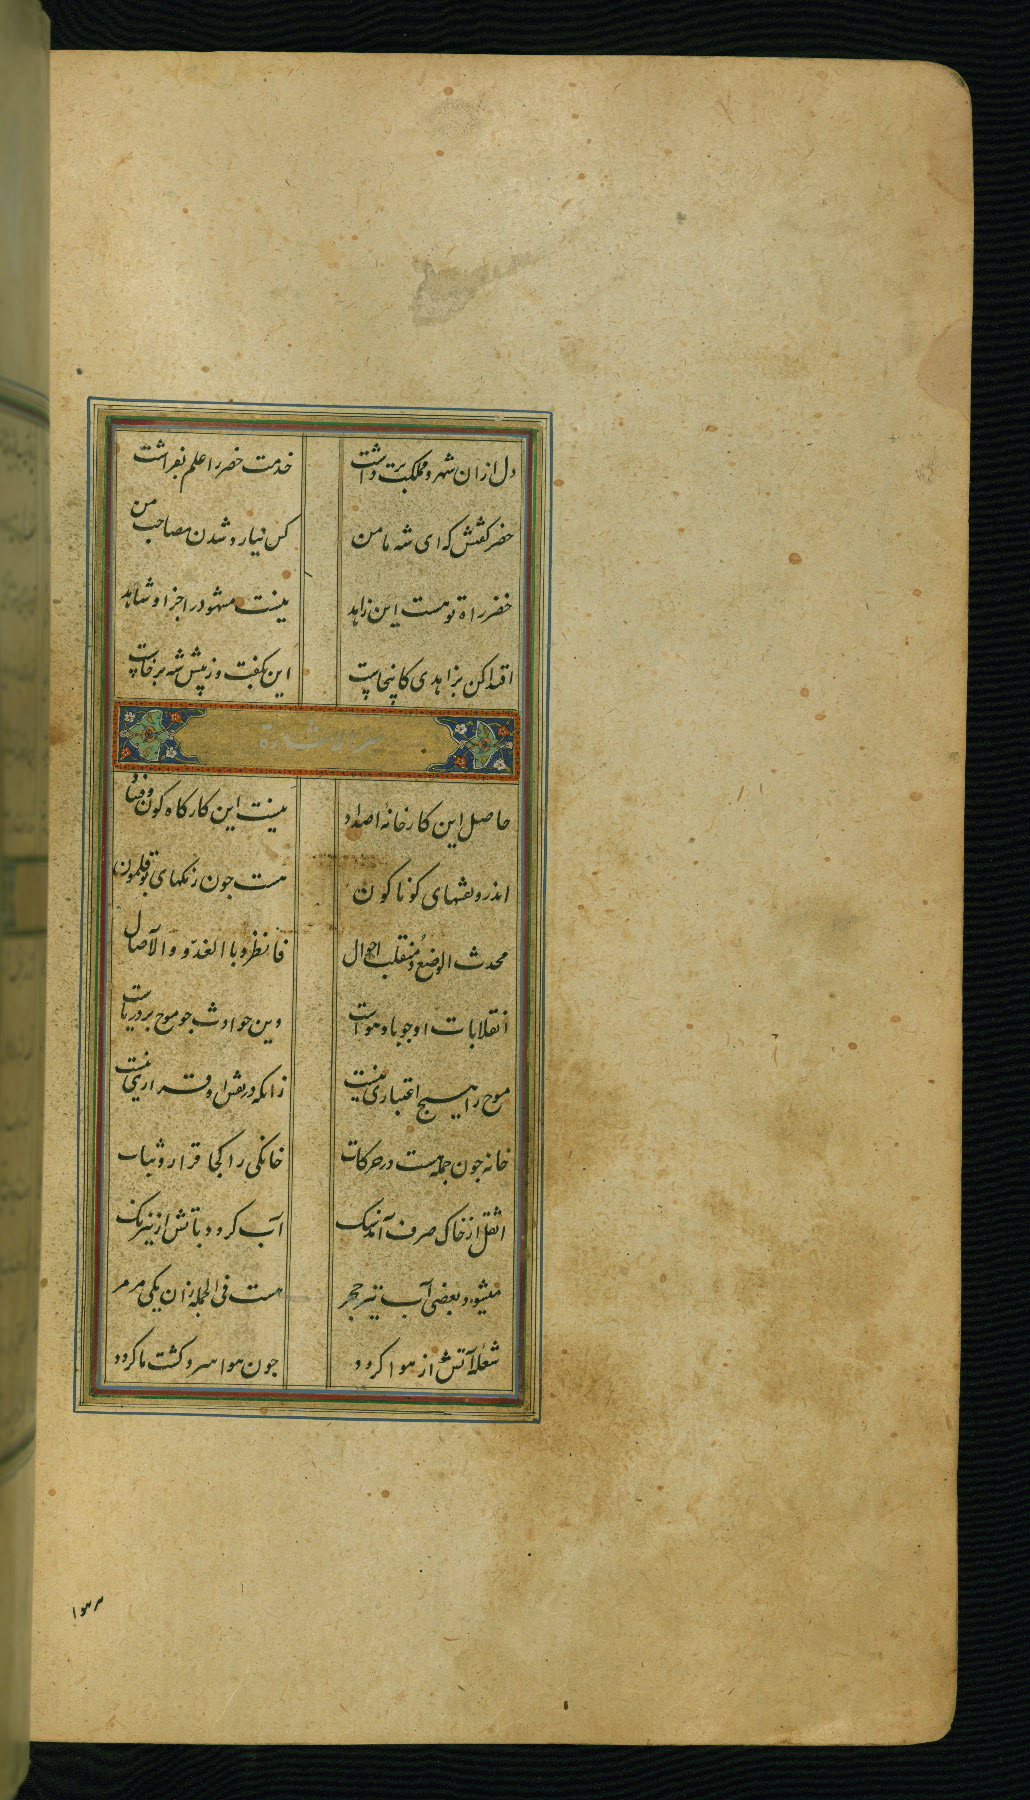 دل ازان شهر و مملکت برداشت خدمت خضر را علم بفراشت
خضر گفتش که ای شه با من کس نیارد شدن مصاحب من
خضر راه تو هست این زاهد نیست مشهود را جز او شاهد
اقتدا کن بزاهدی کاینجاست این بگفت و ز پیش شه برخاست
سر الاشارة
حاصل این کارخانه اضداد نیست این کارکاه کون و فساد
اندرو نقشهای کوناکون هست جون رنکهای بوقلمون
محدث الوضع و منقلب احوال فانظروا بالغدو والآصال
انقلابات او جو باد هواست وین حوادث جو موج بر دریاست
موج را هیج اعتباری نیست زانکه در نقش او قراری نیست
خانه جون جمله هست در حرکات خانکی را کجا قرار و ثبات
اثقل از خاک صرف آمد سنک آب کردد باتش از نیرنک
میشود بعضی آب نیز حجر هست فی الجمله زان یکی مرمر
شعله آتش از هوا کردد جون هوا سرد کشت ما کردد